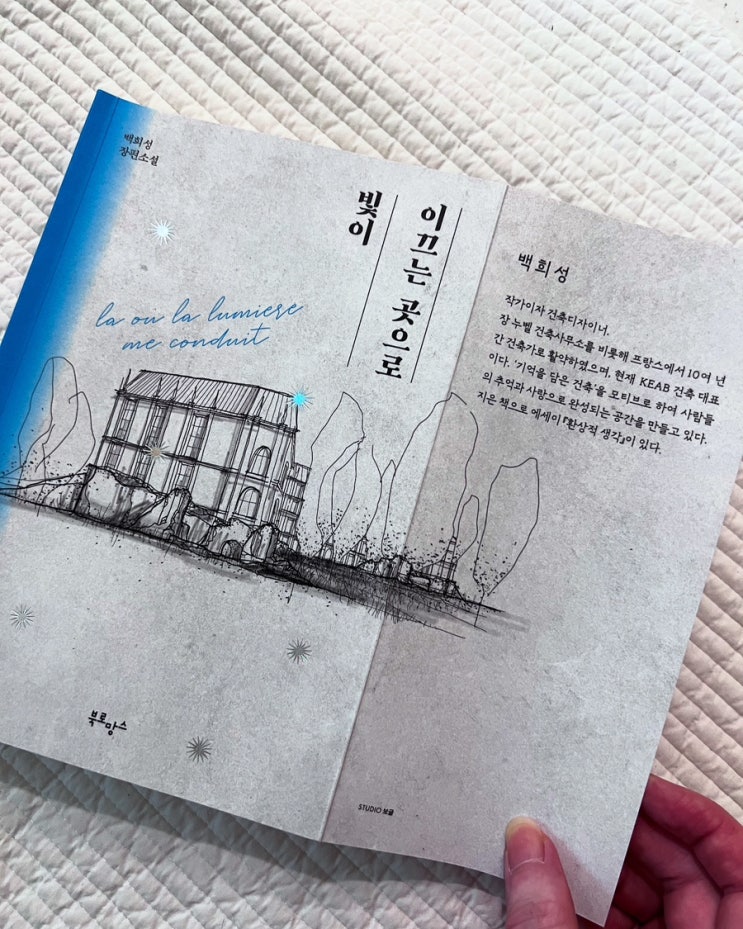 백희성
장편소설
빛이
이끄는 곳으로
la ou la lumiere
me conduit
북로망스
백희성
작가이자 건축디자이너.
장 누벨 건축사무소를 비롯해 프랑스에서 10여 년
간 건축가로 활약하였으며, 현재 KEAB 건축 대표
이다. '기억을 담은 건축'을 모티브로 하여 사람들
의 추억과 사랑으로 완성되는 공간을 만들고 있다.
지은 책으로 에세이 『환상적 생각』이 있다.
STUDIO 보글